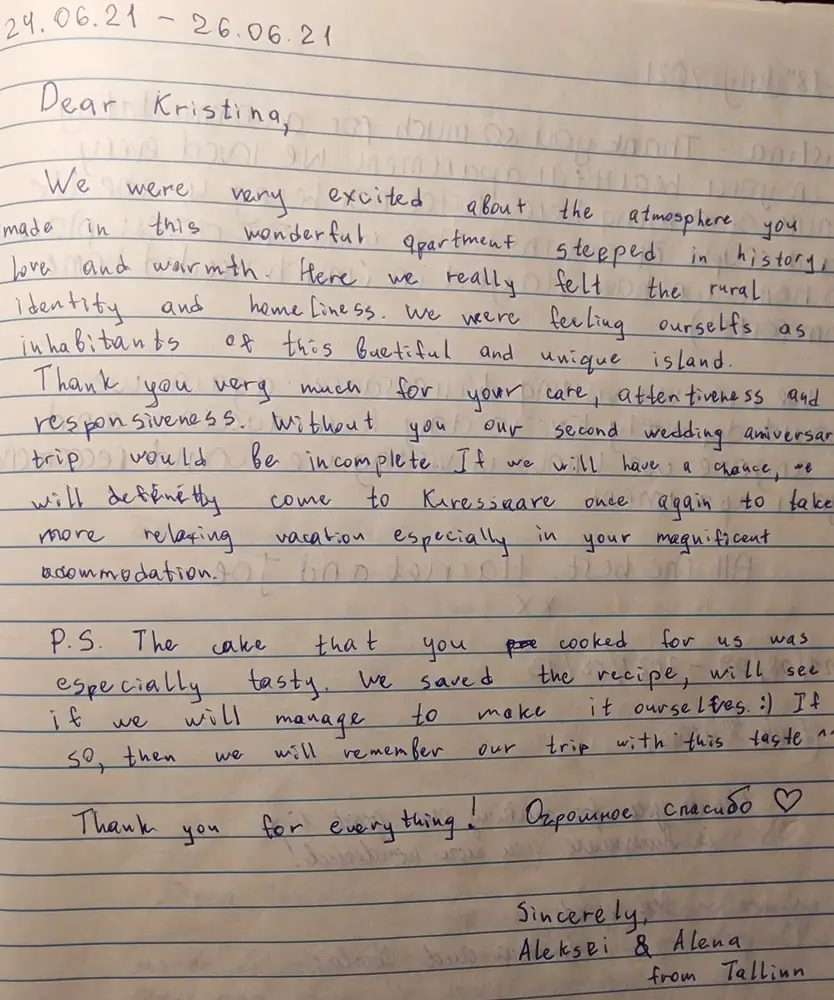 24.06.21 - 26.06.21
Dear Kristina,
We were very excited about the atmosphere you
made in this wonderful apartment steeped in history,
love and warmth. Here we really felt the rural
identity and homeliness. We were feeling ourselfs as
inhabitants of this buetiful and unique island.
Thank you very much for your care, attentiveness and
responsiveness. Without you our second wedding aniversar
trip would be incomplete. If we will have a chance, we
will definetly come to Kuressaare once again to take
more relaxing vacation especially in your magnificent
acommodation.
P.S. The cake that you cooked for us was
especially tasty. We saved the recipe, will see
if we will manage to make it ourselves :) If
so, then we will remember our trip with this taste ^^
Thank you for everything! Огромное спасибо ♡
Sincerely,
Aleksei & Alena
from Tallinn